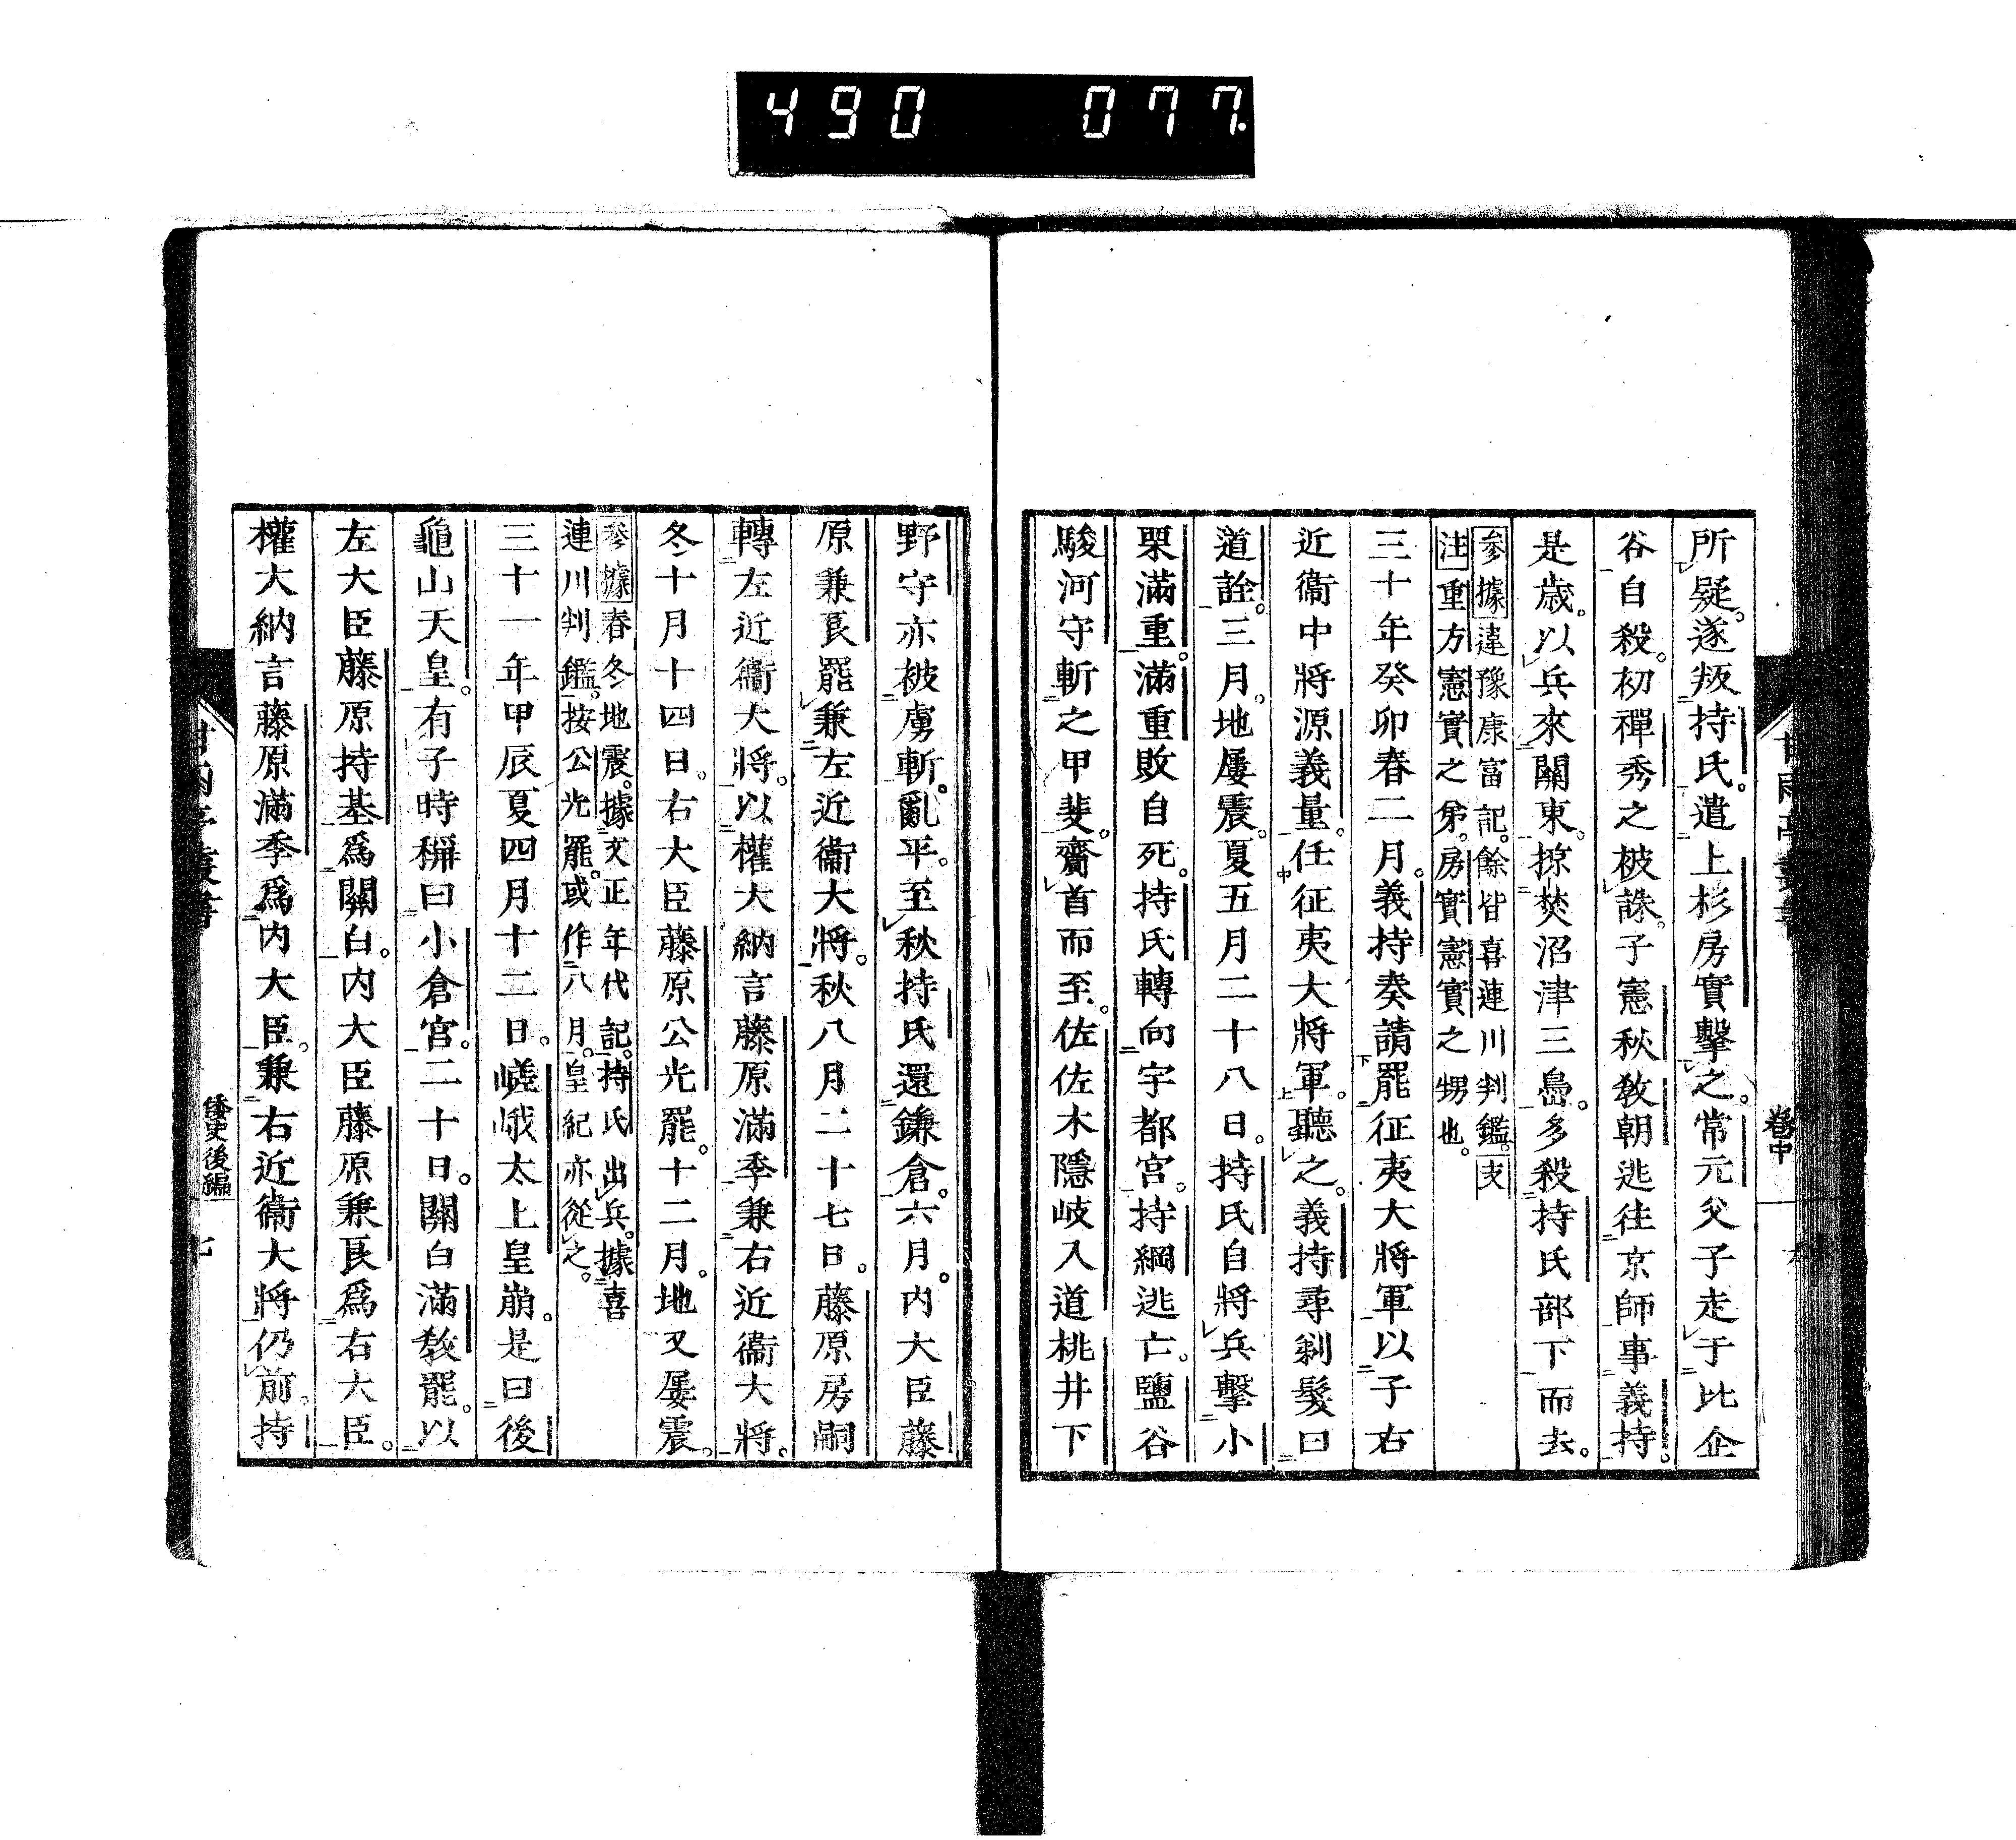 490 077.
所疑。遂叛持氏。遣上杉房實擊之。常元父子走于比企
谷自殺。初禪秀之被誅。子憲秋敎朝逃往京師事義持。
是歲。以兵來關東。掠焚沼津三島。多殺持氏部下而去。
參據違豫康富記。餘皆喜連川判鑑。支
注重方憲實之弟。房實憲實之甥也。
三十年癸卯春二月。義持奏請罷征夷大將軍以子右
近衞中將源義量。任征夷大將軍。聽之。義持尋剃髮曰
道詮。三月。地屢震。夏五月二十八日。持氏自將兵擊小
栗滿重。滿重敗自死。持氏轉向宇都宮。持綱逃亡。鹽谷
駿河守斬之甲斐。齎首而至。佐佐木隱岐入道桃井下
卷中
野守亦被虜斬。亂平。至秋持氏還鎌倉。六月。內大臣藤
原兼良罷兼左近衞大將。秋八月二十七日。藤原房嗣
轉左近衞大將。以權大納言藤原滿季兼右近衞大將。
冬十月十四日。右大臣藤原公光罷。十二月。地又屢震。
參據春冬地震。據文正年代記。持氏出兵。據喜
連川判鑑。按公光罷。或作八月。皇紀亦從之。
三十一年甲辰夏四月十二日。嵯峨太上皇崩。是曰後
龜山天皇。有子時稱曰小倉宮。二十日。關白滿敎罷。以
左大臣藤原持基爲關白。內大臣藤原兼良爲右大臣。
權大納言藤原滿季爲內大臣。兼右近衞大將仍前。持
倭史後編